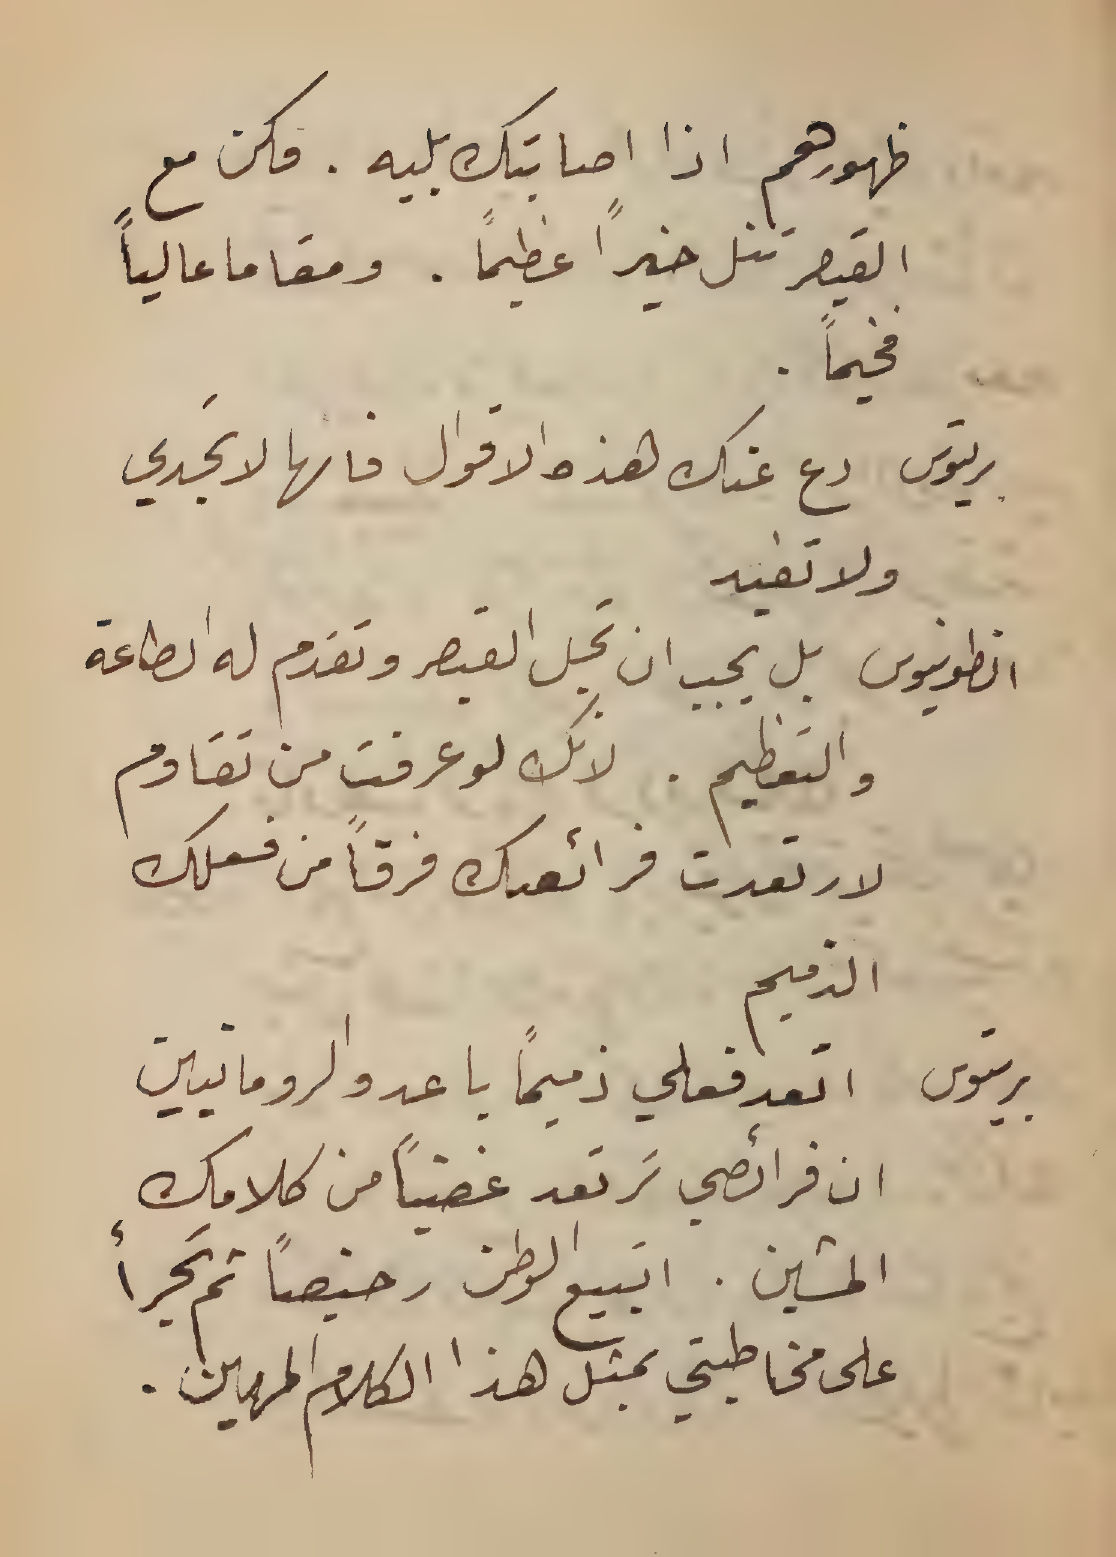 ظهورهم اذا اصابتك بليه . فكن مع
القيصر تنل خيراً عظيماً . ومقاما عالياً
فخيماً .
بريتوس دع عنك هذه الاقوال فانها لا تجدي
ولا تفيد
انطونيوس بل يجب ان تجل القيصر وتقدم له الطاعة
والتعظيم . لانك لو عرفت من تقاوم
لارتعدت فرائصك فرقاً من فعلك
الذميم
بريتوس اتعد فعلي ذميماً يا عدو الرومانيين
ان فرائصي ترتعد غضباً من كلامك
المشين . اتبيع الوطن رخيصاً ثم تجرأ
على مخاطبتي بمثل هذا الكلام المهين .